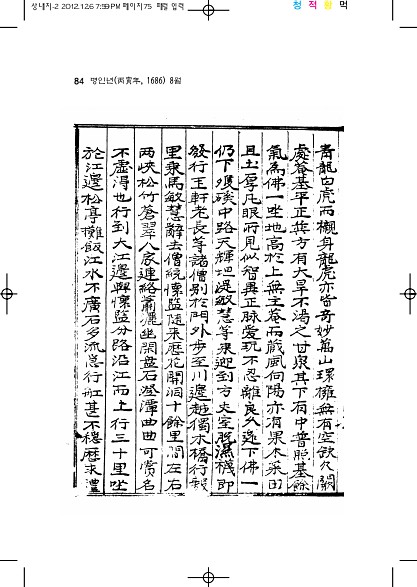 상내지-2 2012.12.6 7:59 PM 페이지75 때컬 입력
청 적 황 먹
84 병인년(丙寅年, 1686) 8월
靑龍白虎而樾身龍虎亦皆奇妙萬山環擁無有空缺久闕
處菴基平正其方有大旱不渴之甘泉其下有中普照基餘
氣爲佛一坐地高於上無主菴而藏風向陽亦有果木采田
且土厚凡眼所見似智異正脉愛玩不忍離良久還下佛一
仍下復磧中路天輝坦湜敏慧等來迎到方丈室脫濕襪即
發行玉軒老長等諸僧別於門外步至川邊越獨木橋行數
里乘馬敏慧辭去僧統慄監隨來歷花開洞十餘里間左右
兩峽松竹蒼翠人家連絡蕭灑坐閑盤石澄潭曲曲可賞名
不虛得也行到大江邊與慄監分路沿江而上行三十里坐
於江邊松亭攤飯江水不廣石多流急行舡甚不穩歷求禮